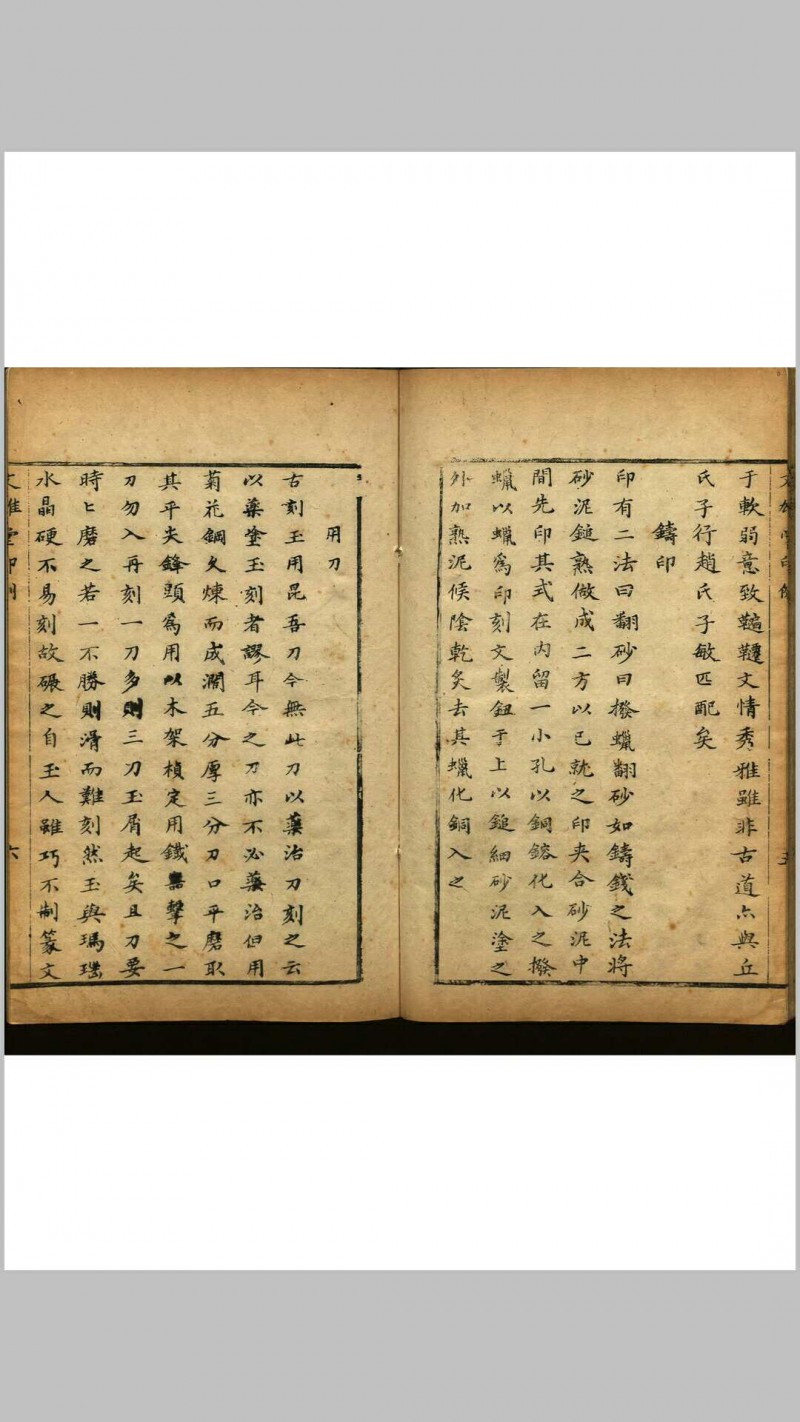 于軟弱意致䪓韆文情秀雅雖非古道亦與丘
氏子行趙氏子敏匹配矣
鑄印
印有二法曰翻砂曰撥蠟翻砂如鑄錢之法將
砂泥鎚熟做成二方以已就之印夾合砂泥中
間先印其式在內留一小孔以銅鎔化入之撥
蠟以蠟爲印刻文製鈕于上以鎚細砂泥塗之
外加熟泥候陰乾炙去其蠟化銅入之
五
用刀
古刻玉用昆吾刀今無此刀以藥治刀刻之云
以藥塗玉刻者謬耳今之刀亦不必藥治但用
菊花鋼久煉而成濶五分厚三分刀口平磨取
其平夾鋒頭爲用以木架楨定用鐵擊之一
刀勿入再刻一刀多則三刀玉屑起矣且刀要
時〻磨之若一不勝則滑而難刻然玉與瑪瑙
水晶硬不易刻故碾之自玉人雖巧不制篆文
六